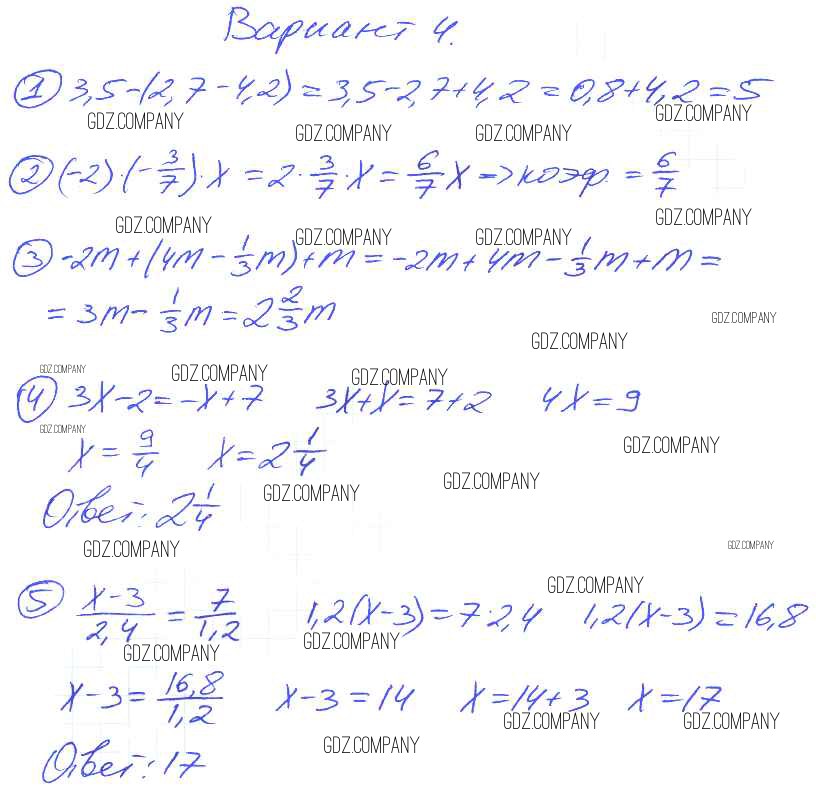 Вариант 4.
① 3,5-(2,7-4,2)=3,5-2,7+4,2=0,8+4,2=5
GDZ.COMPANY GDZ.COMPANY GDZ.COMPANY GDZ.COMPANY
② (-2)·(-3/7)·x=2·3/7·x=6/7x=>коэф.=6/7
GDZ.COMPANY GDZ.COMPANY GDZ.COMPANY GDZ.COMPANY
③ -2m+(4m-1/3m)+m=-2m+4m-1/3m+m=
=3m-1/3m=2 2/3m
GDZ.COMPANY GDZ.COMPANY
GDZ.COMPANY GDZ.COMPANY GDZ.COMPANY
④ 3x-2=-x+7 3x+x=7+2 4x=9
GDZ.COMPANY GDZ.COMPANY
x=9/4 x=2 1/4
GDZ.COMPANY GDZ.COMPANY
Ответ: 2 1/4
GDZ.COMPANY GDZ.COMPANY
GDZ.COMPANY
⑤ x-3/2,4=7/1,2 1,2(x-3)=7·2,4 1,2(x-3)=16,8
GDZ.COMPANY GDZ.COMPANY
x-3=16,8/1,2 x-3=14 x=14+3 x=17
GDZ.COMPANY GDZ.COMPANY GDZ.COMPANY
Ответ: 17